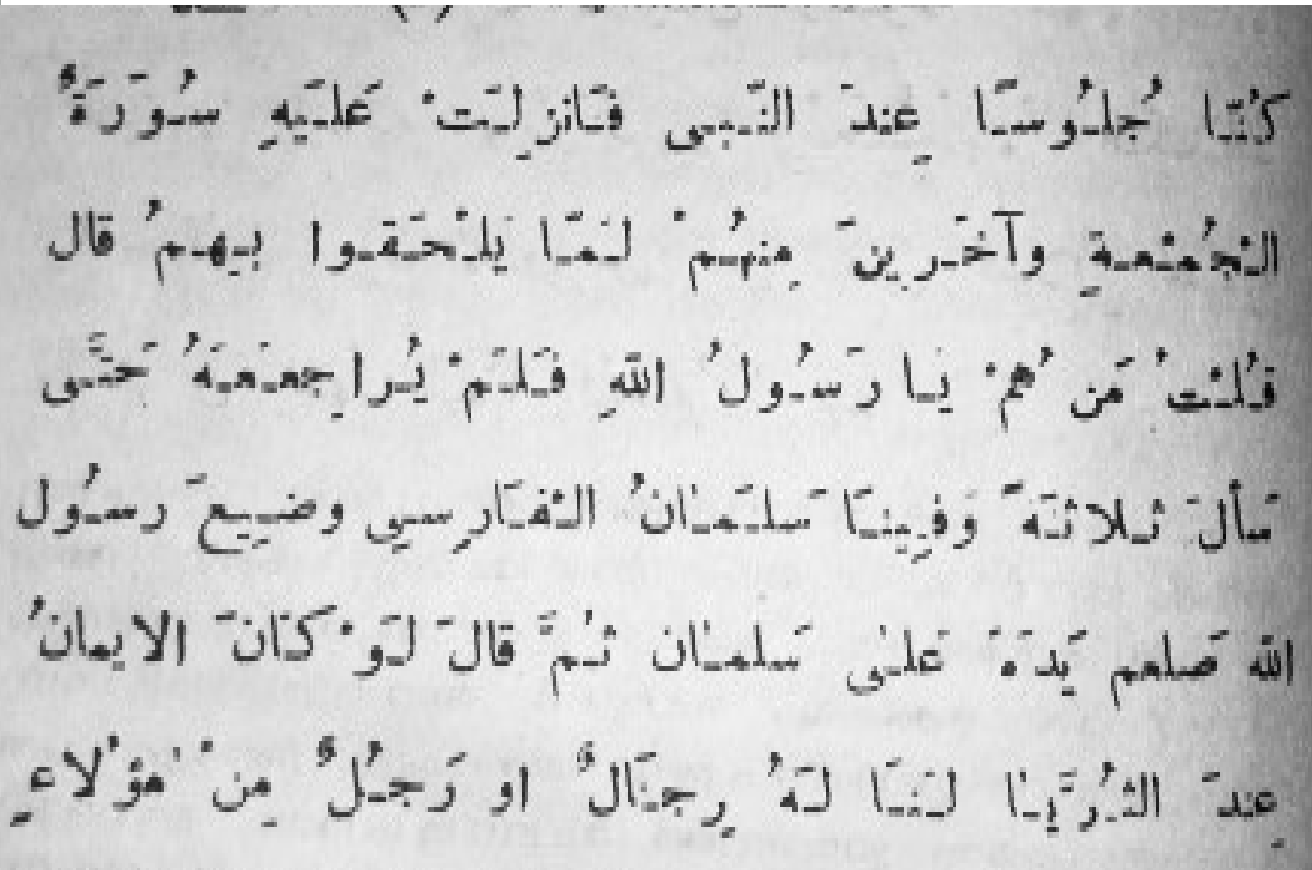 كُنَّا جُلُوسًا عِندَ النَّبِى فَانزِلَتْ عَلَيهِ سُورَةٌ
الْجُمْعةِ وآخَرِينَ مِنهُمْ لَمَّا يلْحَقوا بِهِمُ قال
قُلْتُ مَن هُمْ يَا رَسُولُ اللهِ فَلَمْ يُراجِعهَ حَتَّى
سَألَ ثلاثَةً وَفِينَا سَلمَانُ الفَارسي وضِيعَ رسُول
الله صَلعم يَدَهَ عَلٰى سَلمٰان ثُمَّ قالَ لَوْ كَانَ الايمانُ
عِندَ الثُّرَيَّا لَنَا لَهُ رِجَالٌ او رَجُلٌ مِنْ هٰؤُلاءِ